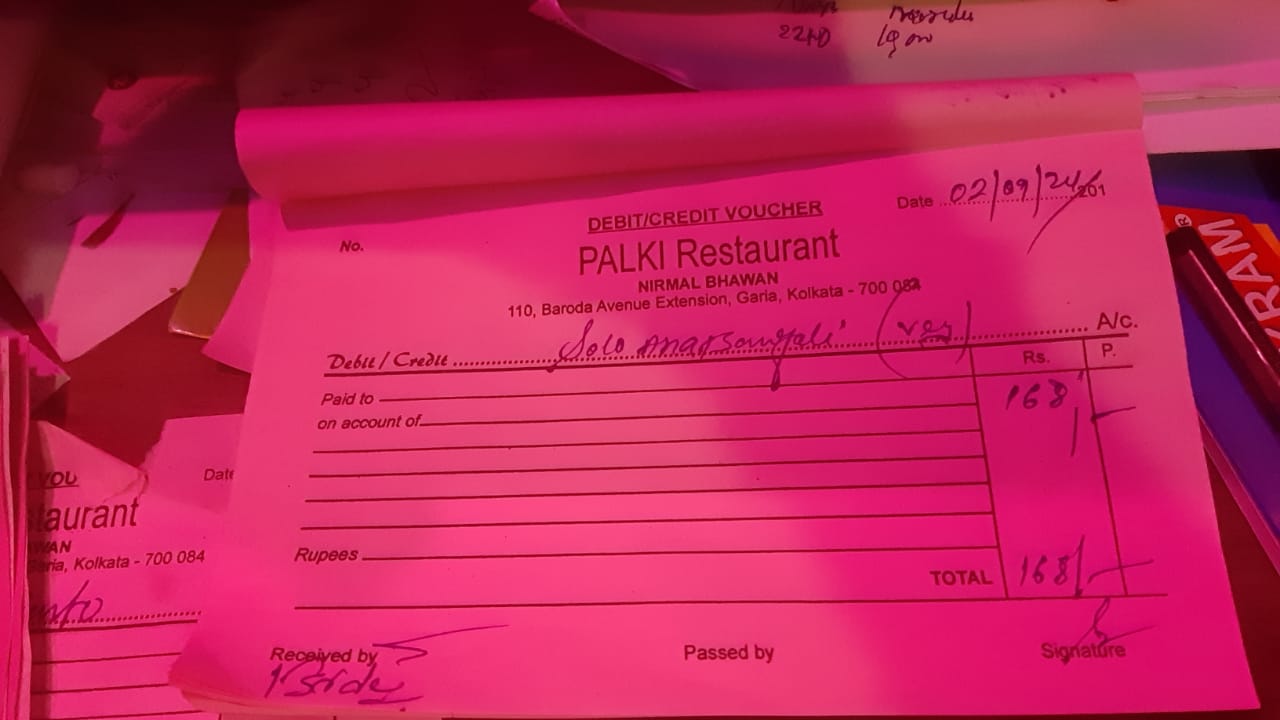 22ND
DEBIT/CREDIT VOUCHER
Date 02/09/24 201
No.
PALKI Restaurant
NIRMAL BHAWAN
110, Baroda Avenue Extension, Garia, Kolkata - 700 084
Debit / Credit Solo (veg) A/c.
Rs. P.
Paid to 168/-
on account of
Rupees
TOTAL 168/-
Received by Passed by Signature
VOU
Date
taurant
WAN
Garia, Kolkata - 700 084
RAM
®